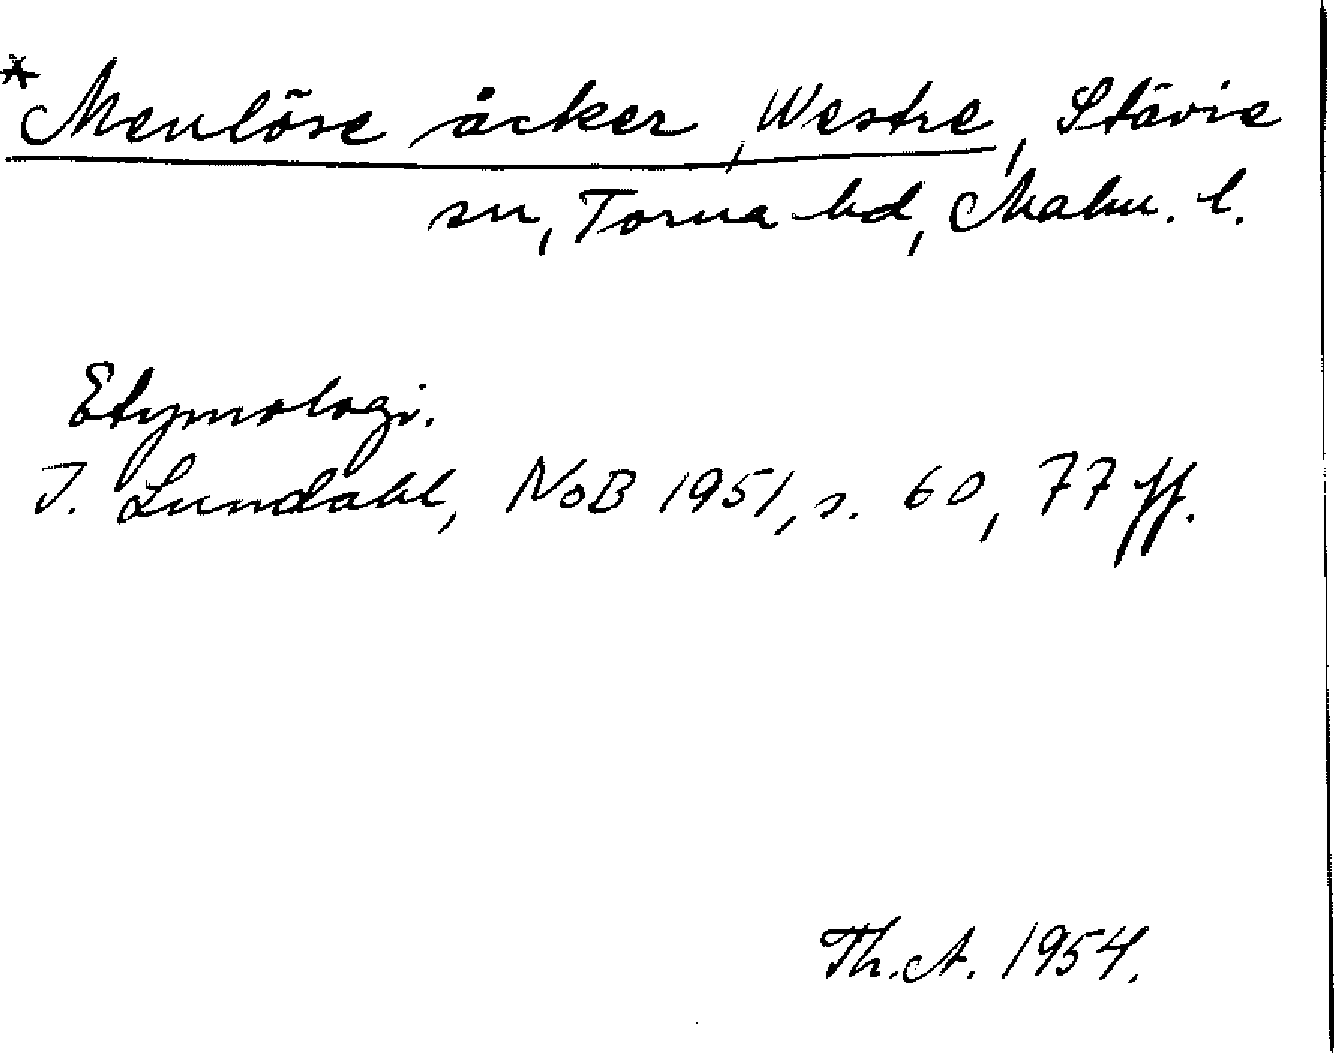 *Menlöse åcker, Westre, Stävie
sn, Torna hd, Malm. l.
Etymologi.
I. Lundahl, NoB 1951, s. 60, 77 ff.
Th. A. 1954.